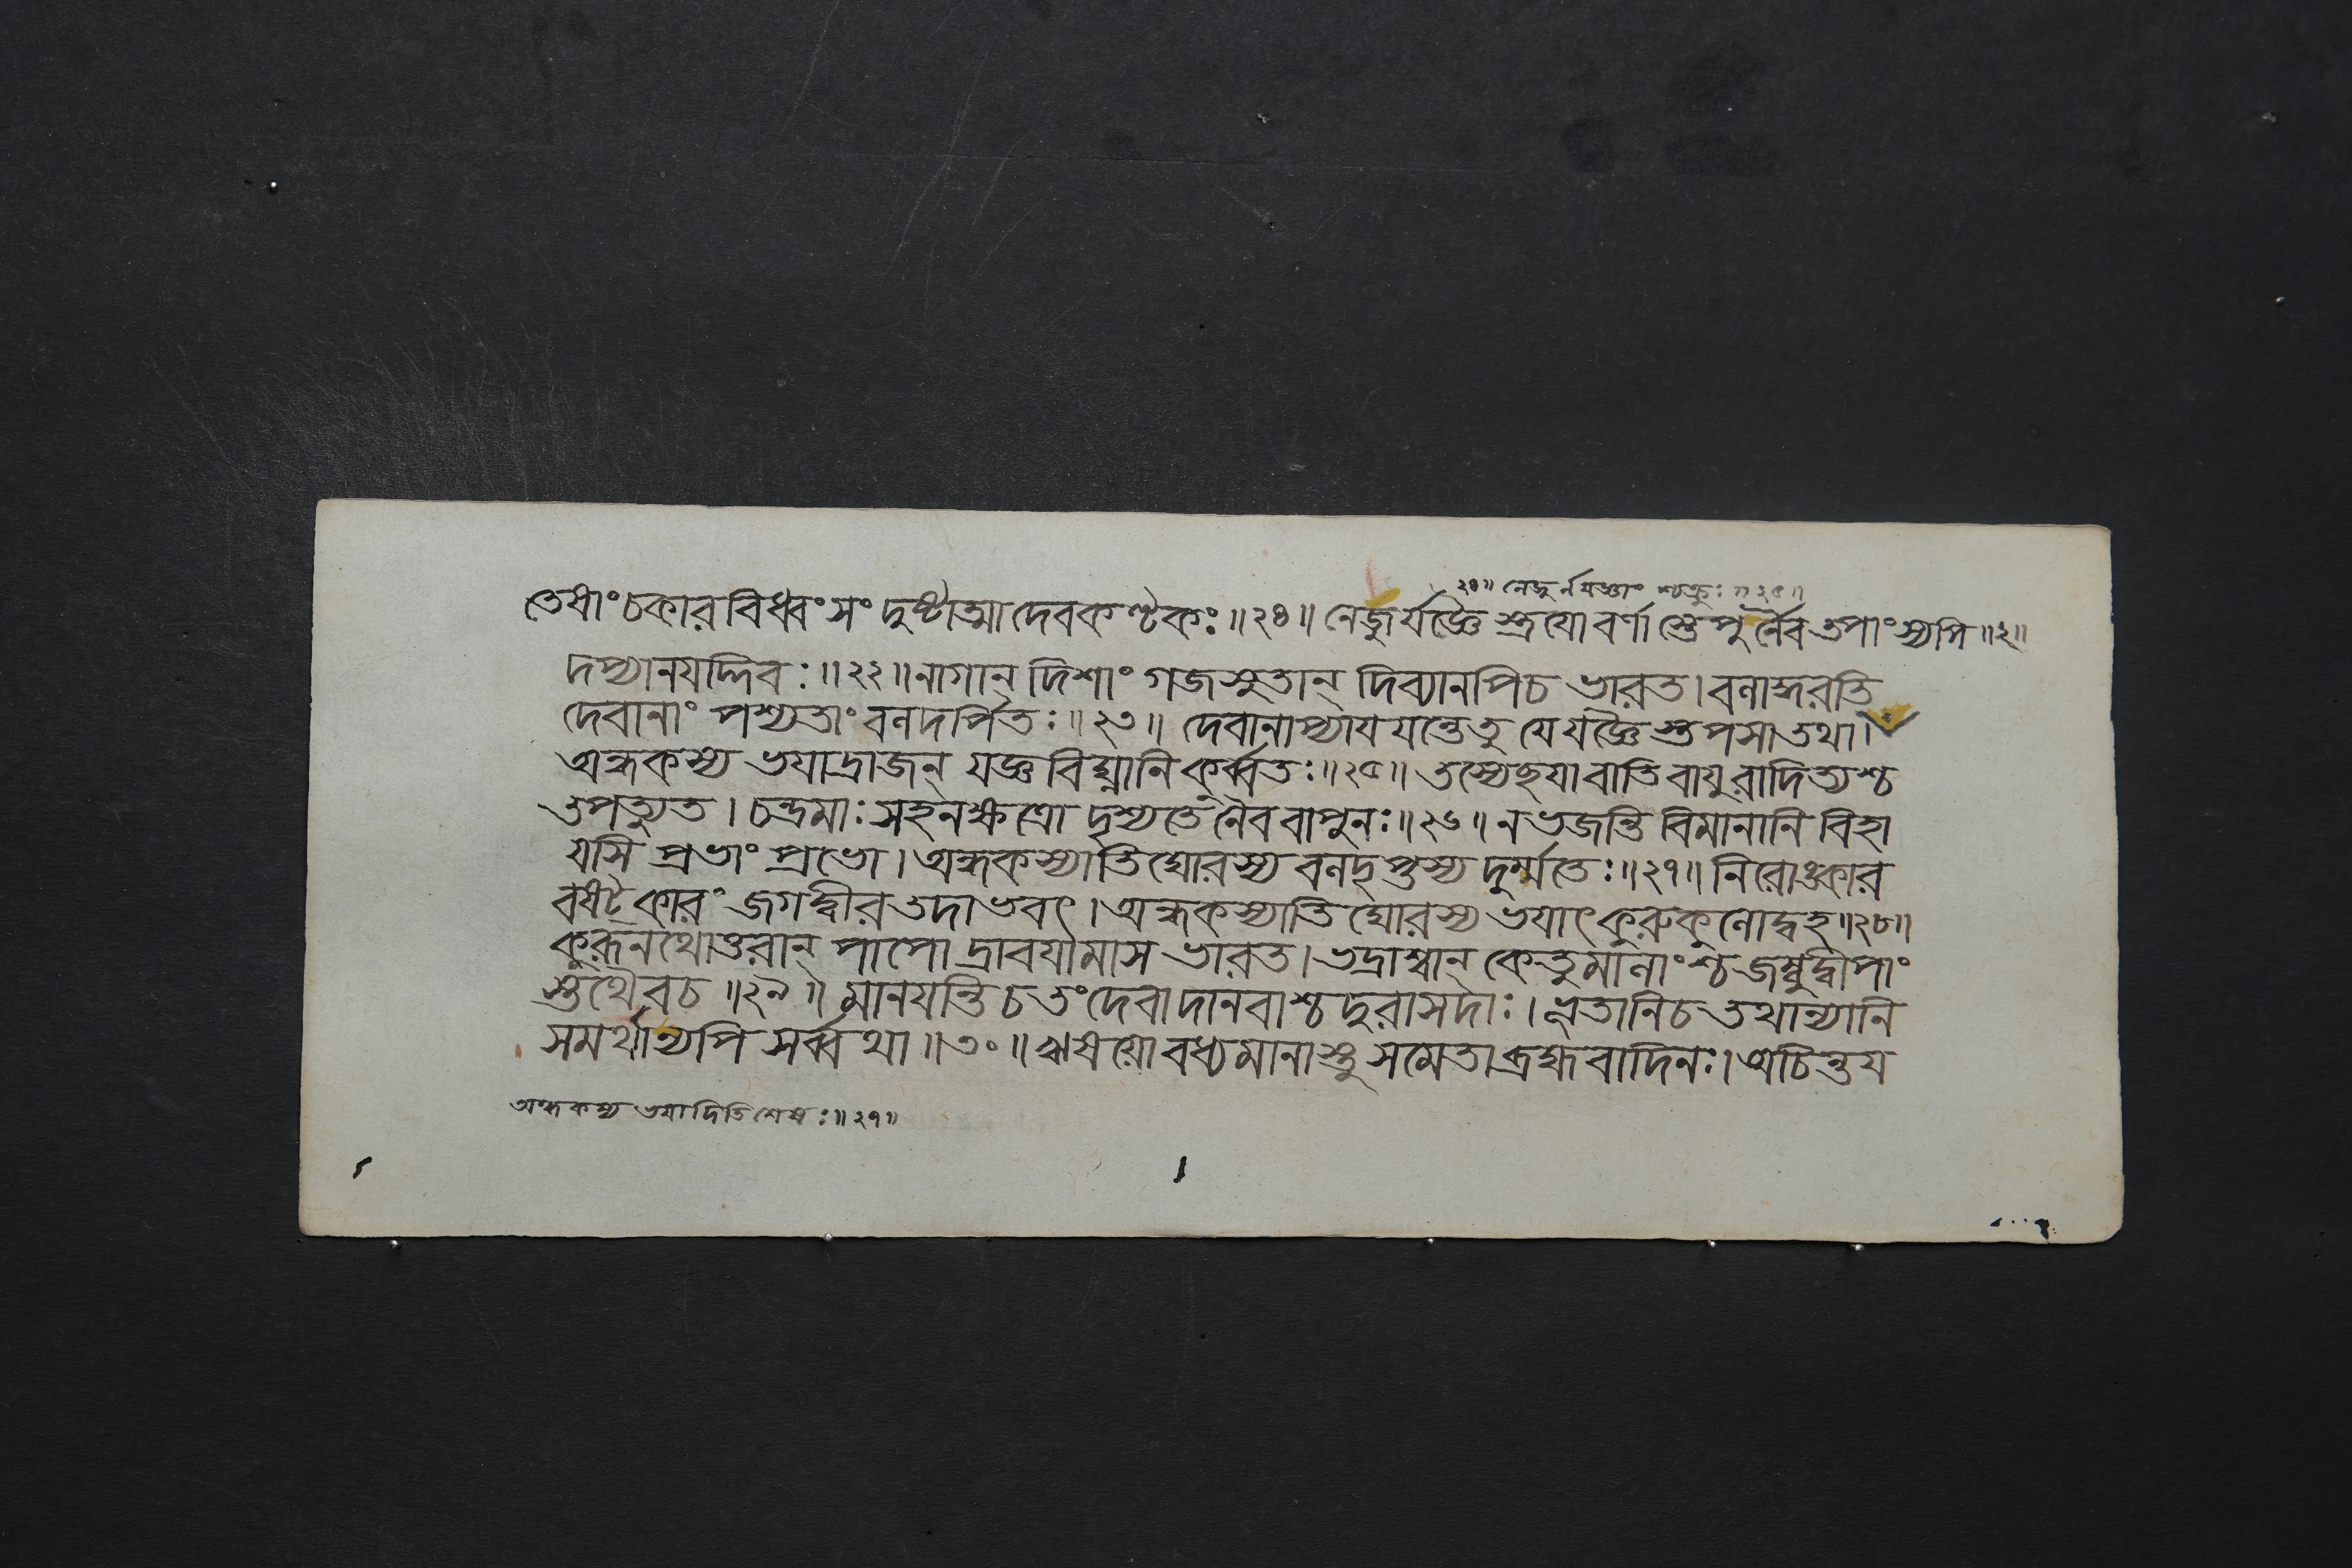 ২৪॥ নেজুর্নযজ্ঞাং শ্চক্রুঃ॥২৫॥
তেষাংচকারবিধ্বংসং দুষ্টাত্মা দেবকণ্টকঃ॥২৪॥ নেজুর্যজ্ঞৈস্ত্রযোবর্ণাস্তেপুর্নৈবতপাংস্যপি॥২॥
দপ্যানযদ্দিবঃ॥২২॥নাগান্ দিশাং গজসুতান্ দিব্যানপিচ ভারত।বলাদ্ধরতি
দেবানাং পশ্যতাং বলদর্পিতঃ॥২৩॥ দেবানাপ্যাযযন্তেতু যেযজ্ঞৈস্তপসাতথা।
অন্ধকস্য ভযাদ্রাজন্ যজ্ঞবিঘ্নানিকুর্ব্বতঃ॥২৫॥ তস্যেছযাবাতিবাযুরাদিত্যশ্চ
তপত্যুত।চন্দ্রমাঃসহনক্ষত্রো দৃশ্যতেনৈববাপুনঃ॥২৬॥নভজন্তি বিমানানি বিহা
যসি প্রভাং প্রভো।অন্ধকস্যাতিঘোরস্য বলদৃপ্তস্য দুর্ম্মতেঃ॥২৭॥নিরোঙ্কার
বষট্কারং জগদ্বীরতদাভবৎ।অন্ধকস্যাতিঘোরস্য ভযাৎকুরুকুলোদ্বহ॥২৮॥
কুরূনথোত্তরান্ পাপো দ্রাবযামাস ভারত।ভদ্রাশ্বান্ কেতুমালাংশ্চজম্বুদ্বীপাং
স্তথৈবচ॥২৯॥ মানযন্তিচতংদেবাদানবাশ্চদুরাসদাঃ।ভূতানিচতথান্যানি
সমর্থান্যপি সর্ব্বথা॥৩০॥ঋষযোবধ্যমানাস্তুসমেতাব্রহ্মবাদিনঃ।অচিন্তয
অন্ধকস্য ভযাদিতিশেষঃ॥২৭॥